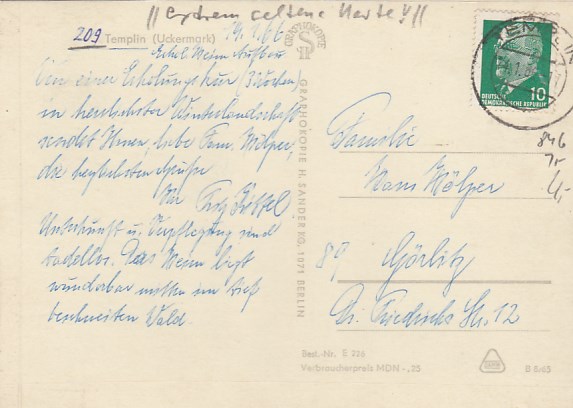 //extrem seltene Karte!!//
209
Templin (Uckermark) 19.1.66
Erhol. Heim Aufbau
Von einer Erholungskur (3 Wochen)
in herrlichster Winterlandschaft
sendet Ihnen, liebe Fam. Mölzer,
die herzlichsten Grüße
Ihr Fritz
Unterkunft u. Verpflegung sind
tadellos. Das Heim liegt
wunderbar mitten im tief
beschneiten Wald.
GRAPHOKOPIE
GRAPHOKOPIE H. SANDER KG, 1071 BERLIN
TEMPLIN
10
DEUTSCHE
DEMOKRATISCHE REPUBLIK
846
7,-
4,-
Familie
Hans Mölzer
89 Görlitz
Dr. Friedrichs Str. 12
Best.-Nr. E 226
Verbraucherpreis MDN -,25
B 8/65